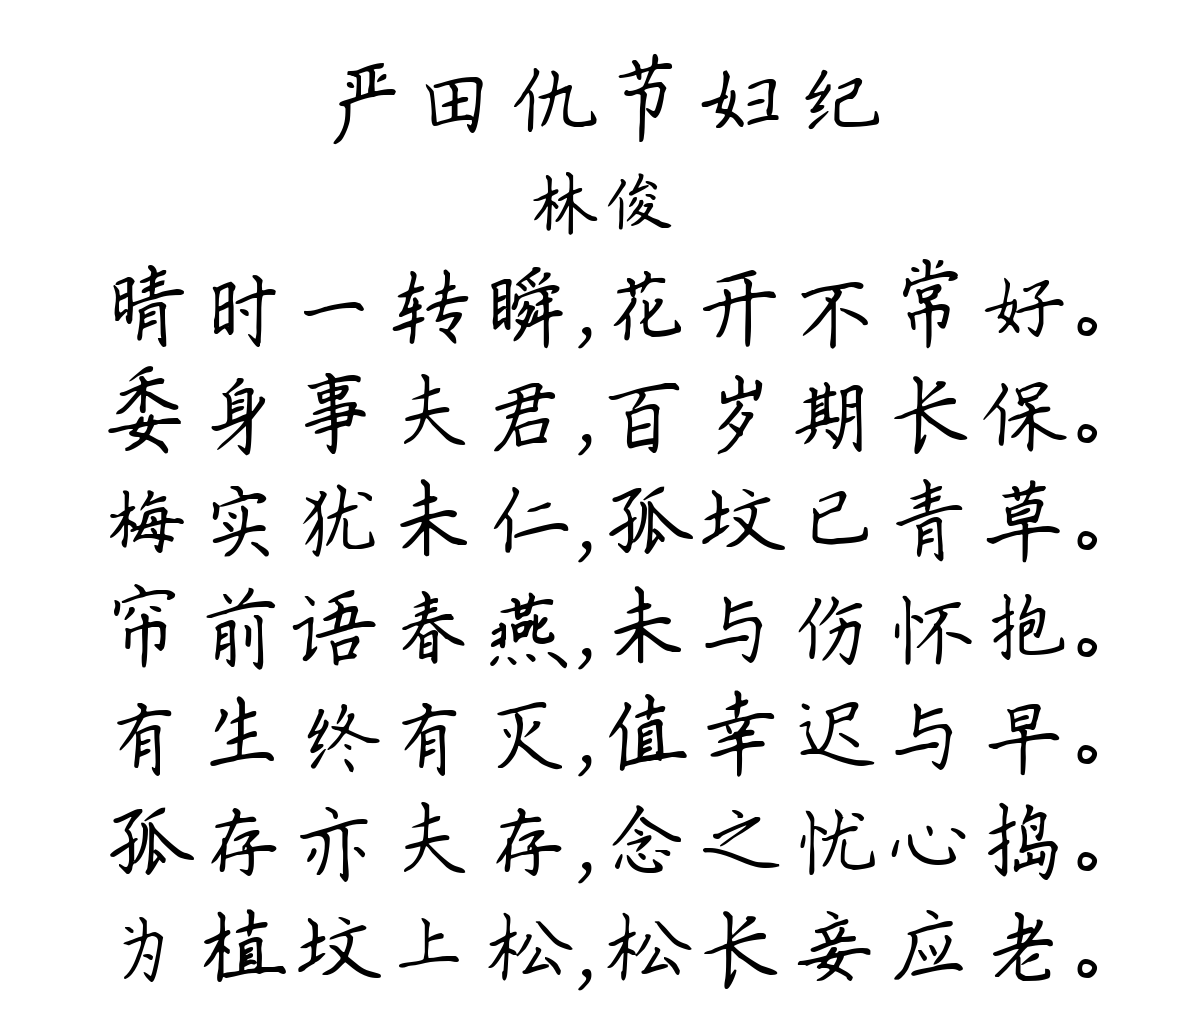 严田仇节妇纪
林俊
晴时一转瞬,花开不常好。
委身事夫君,百岁期长保。
梅实犹未仁,孤坟已青草。
帘前语春燕,未与伤怀抱。
有生终有灭,值幸迟与早。
孤存亦夫存,念之忧心捣。
为植坟上松,松长妾应老。